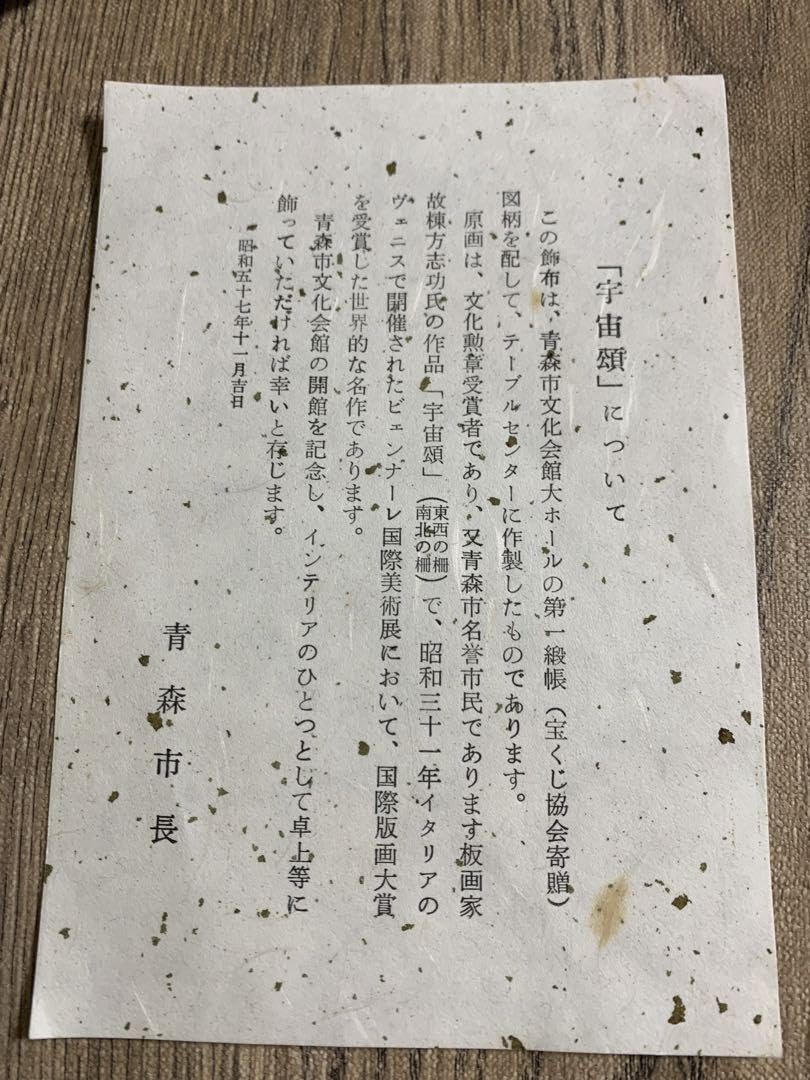 「宇宙頌」について
この飾布は、青森市文化会館大ホールの第一緞帳（宝くじ協会寄贈）
図柄を配して、テーブルセンターに作製したものであります。
原画は、文化勲章受賞者であり、又青森市名誉市民であります板画家
故棟方志功氏の作品「宇宙頌」（東西の柵南北の柵）で、昭和三十一年イタリアの
ヴェニスで開催されたビェンナーレ国際美術展において、国際版画大賞
を受賞した世界的な名作であります。
青森市文化会館の開館を記念し、インテリアのひとつとして卓上等に
飾っていただければ幸いと存じます。
昭和五十七年十一月吉日
青森市長